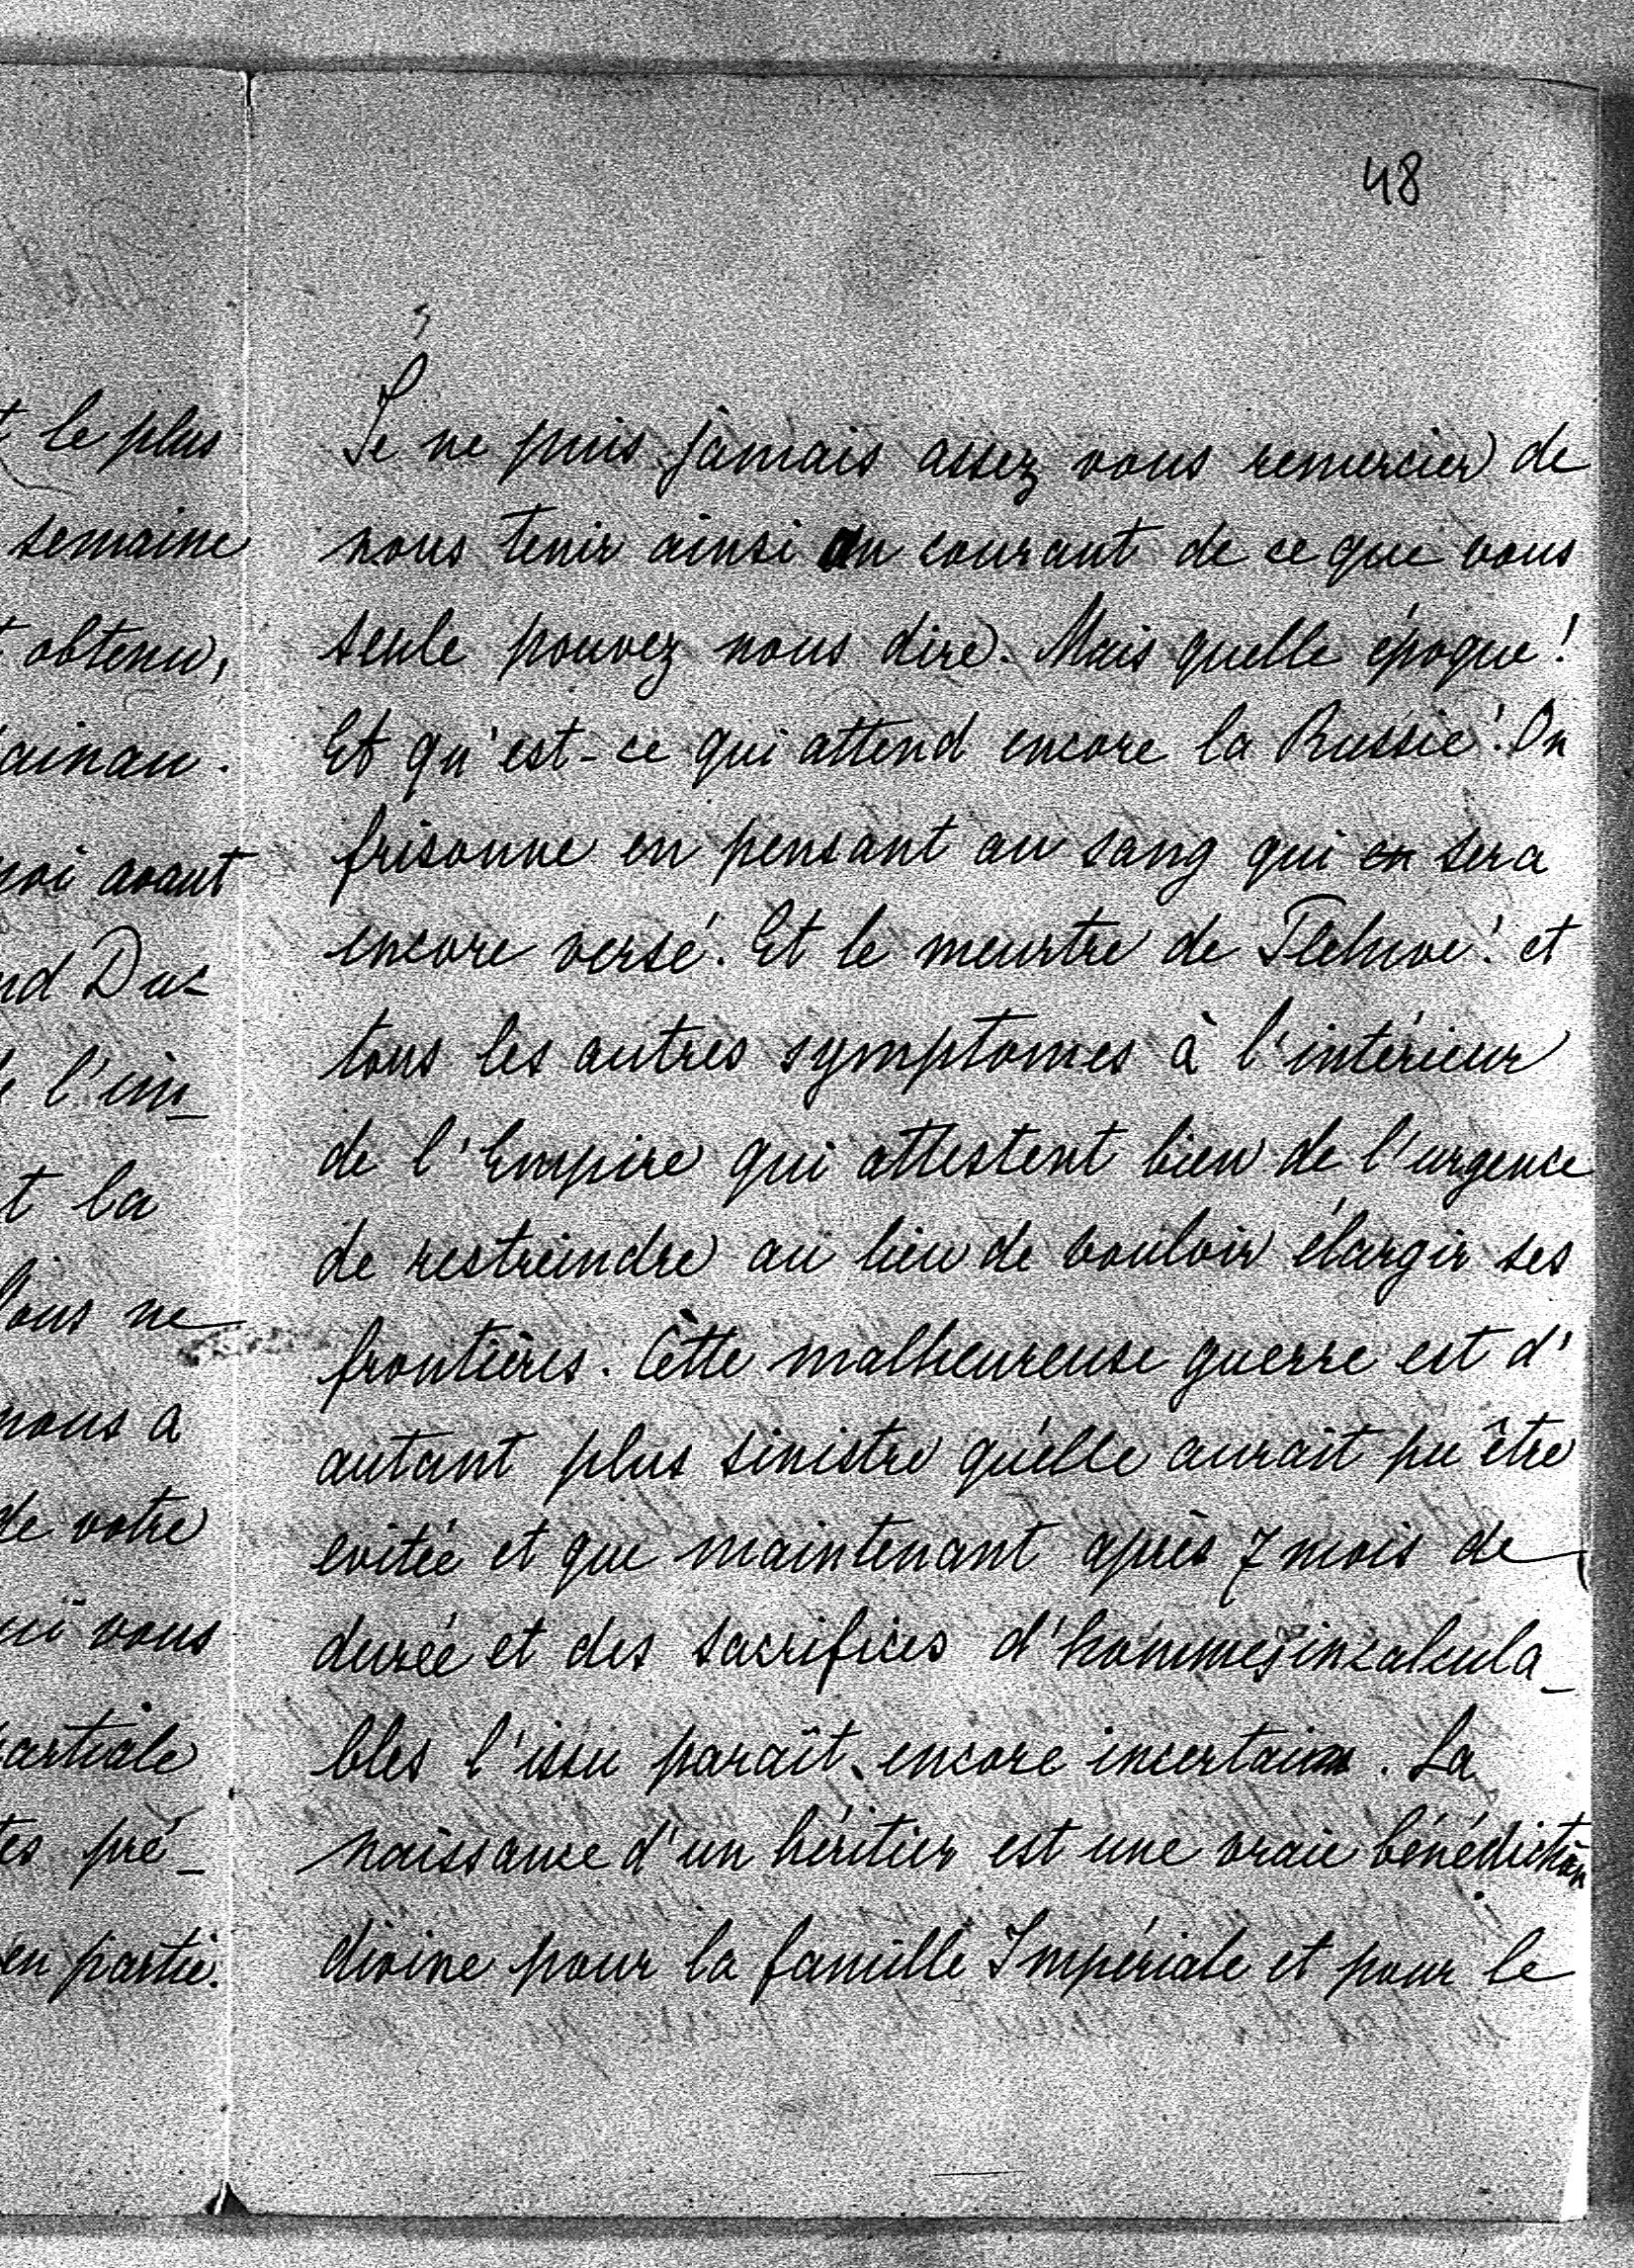 48
t le plus
semaine
t obtenu,
ainau.
avant
nd Duc
l'im_
t la
Vous ne
nous a
de votre
ui vous
partiale
tes pré_
en partie.
Je ne puis jamais assez vous remercier de
nous tenir ainsi au courant de ce que vous
seule pouvez nous dire. Mais quelle époque!
Et qu'est-ce qui attend encore la Russie! On
frisonne en pensant au sang qui en sera
encore versé. Et le meurtre de Plehwe! et
tous les autres symptomes à l'intérieur
de l'Empire qui attestent bien de l'urgence
de restreindre au lieu de vouloir élargir ses
frontières. Cette malheureuse guerre est d'
autant plus sinistre qu'elle aurait pu être
evitée et que maintenant après 7 mois de
durée et des sacrifices d'hommes incalcula_
bles l'issu paraît encore incertain. La
naissance d'un héritier est une vraie bénédiction
divine pour la famille Impériale et pour le